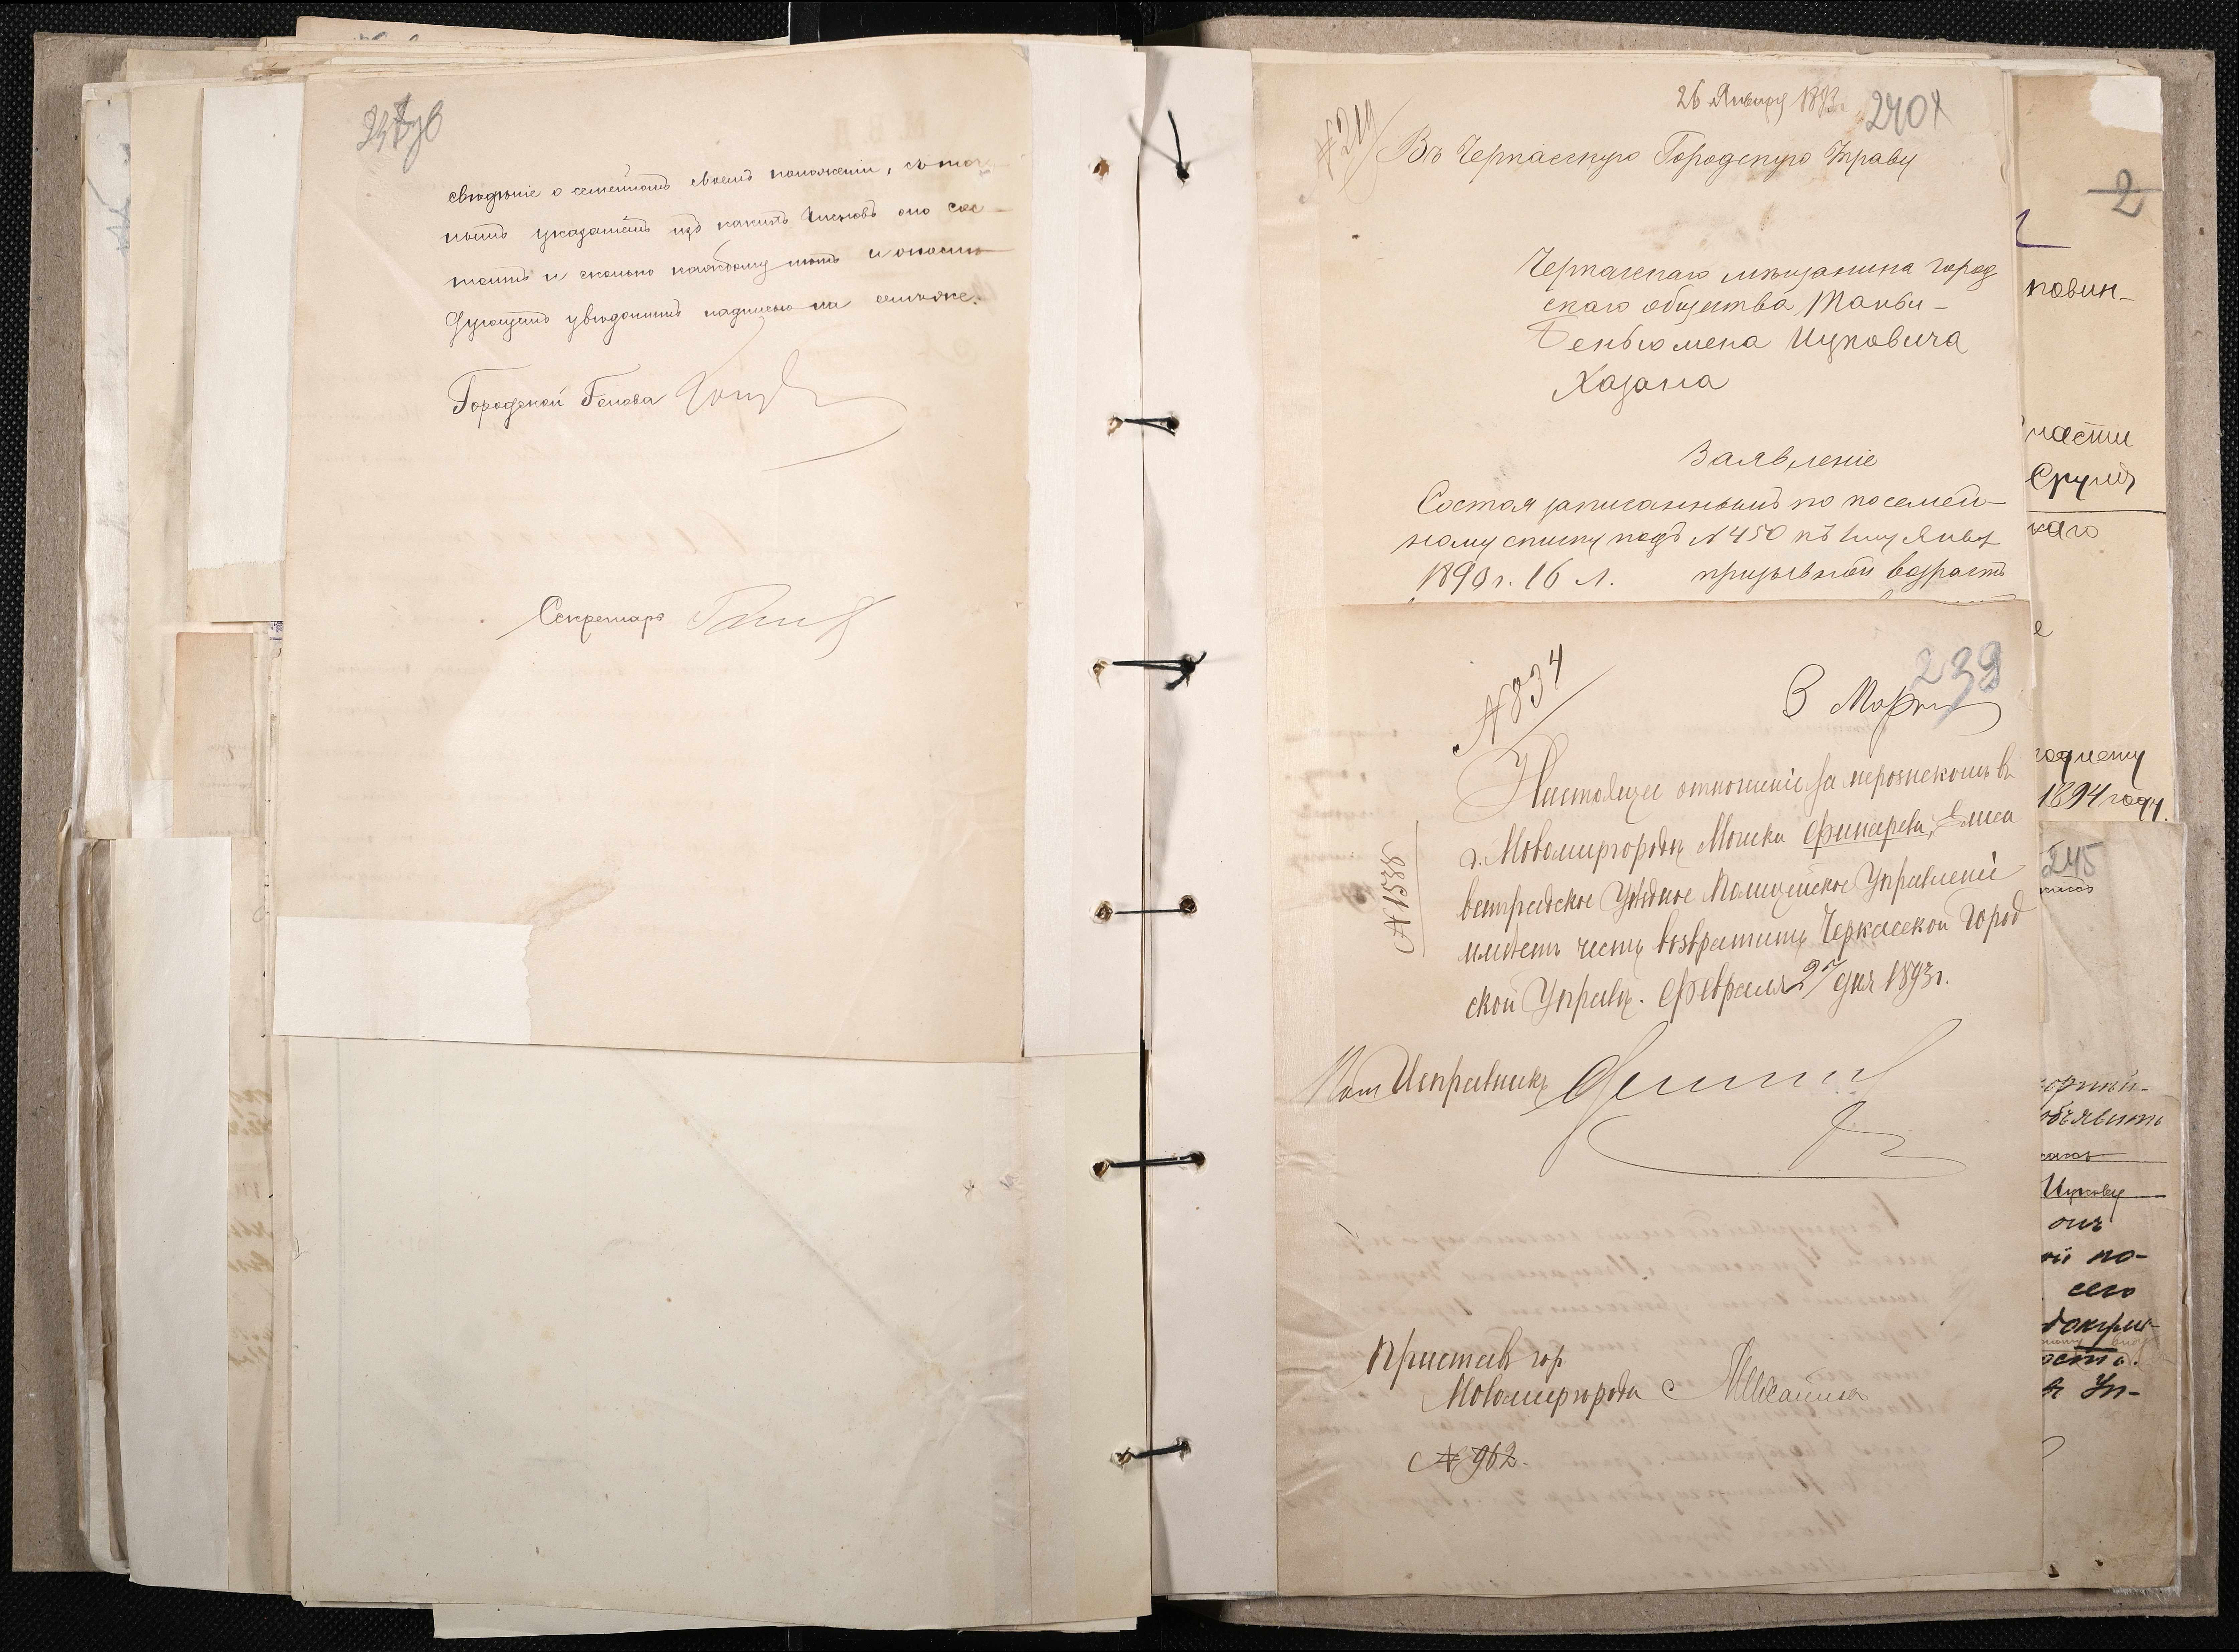 свѣдѣніе о семейномъ своемъ положеніи, съ точ-
нымъ указаніемъ изъ какихъ членовъ оно сос-
тоитъ и сколько каждому лѣтъ и о послѣ-
дующемъ увѣдомить надписью на семъ же.
Городской Голова
Секретарь
26 Января 1893
240
№ 219
Въ Черкасскую Городскую Управу
Черкасскаго мѣщанина город
скаго общества
Беньюмена Ицковича
Хазана
Заявленіе
Состоя записаннымъ по посемей-
ному списку подъ №450 къ 1му Янв
1890 г. 16 л. призывной возрастъ
239
№834
3 Марта
Настоящее отношеніе за нерозыскомъ въ
г. Новомиргородѣ Мошка Финарева, Елиса
ветградское Уѣздное Полицейское Управленіе
№1588
имѣетъ честь возвратить Черкасской Город
ской Управѣ. Февраля 27 дня 1893г.
Исправникъ
Приставъ гор
Новомиргорода
№ 962.
2
повин-
части
Сруля
каго
1894 году.
245
объявить
Ицковсу
онъ
по-
сего
Уп-